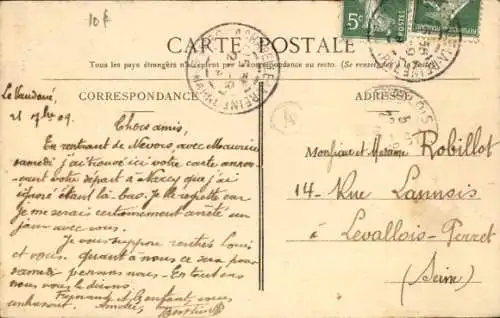 10f
CARTE POSTALE
Tous les pays étrangers n'acceptent pas la correspondance au recto. (Se renseigner à la
CORRESPONDANCE
ADRESSE
5c
Le Vaudoué,
21 7bre 09.
Chers amis,
En rentrant de Névois, avec Maurice
samedi j'ai trouvé ici votre carte annon-
çant votre départ à Nancy que j'ai
ignoré étant là-bas. Je le regrette car
je me serais certainement arrêté un
jour avec vous.
Je vous suppose rentrés Louis
et vous. Quant à nous ce sera pour
samedi pensons nous. En tout cas
nous vous le dirons.
Fernand et Benfant vous
embrassent. André
Monsieur et Madame Robillot
14 - Rue Lannois
à Levallois-Perret
(Seine)